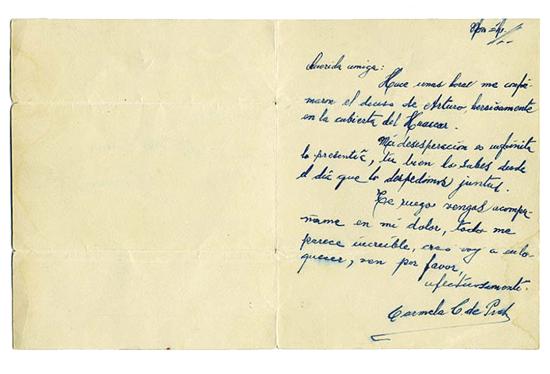 Querida amiga:
Hace unas horas me confir-
maron el deceso de Arturo, heroicamente
en la cubierta del Huascar.
Mi desesperación es infinita
lo presentía, tu bien lo sabes desde
el día que lo despedimos juntas.
Te ruego vengas acompa-
ñame en mi dolor, todo me
parece increíble, creo voy a enlo-
quecer, ven por favor,
afectuosamente.
Carmela C. de Prat